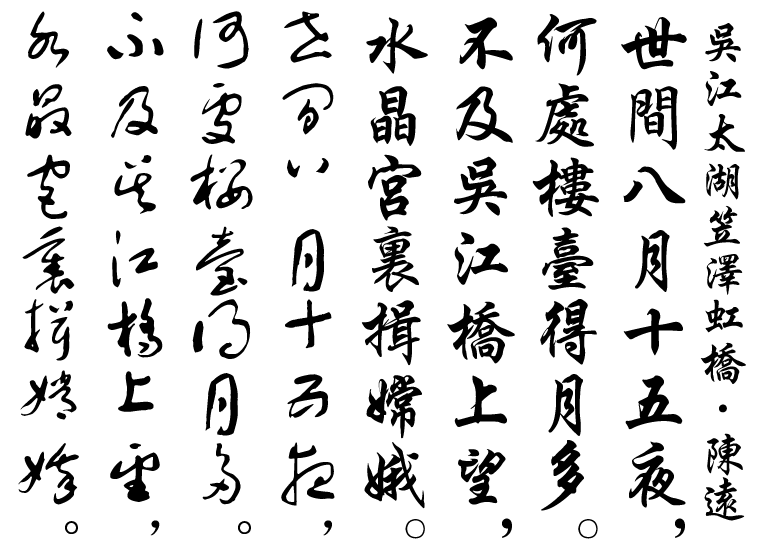 吳江太湖笠澤虹橋·陳遠
世間八月十五夜，
何處樓臺得月多。
不及吳江橋上望，
水晶宮裏揖嫦娥。
世間八月十五夜，
何處樓臺得月多。
不及吳江橋上望，
水晶宮裏揖嫦娥。